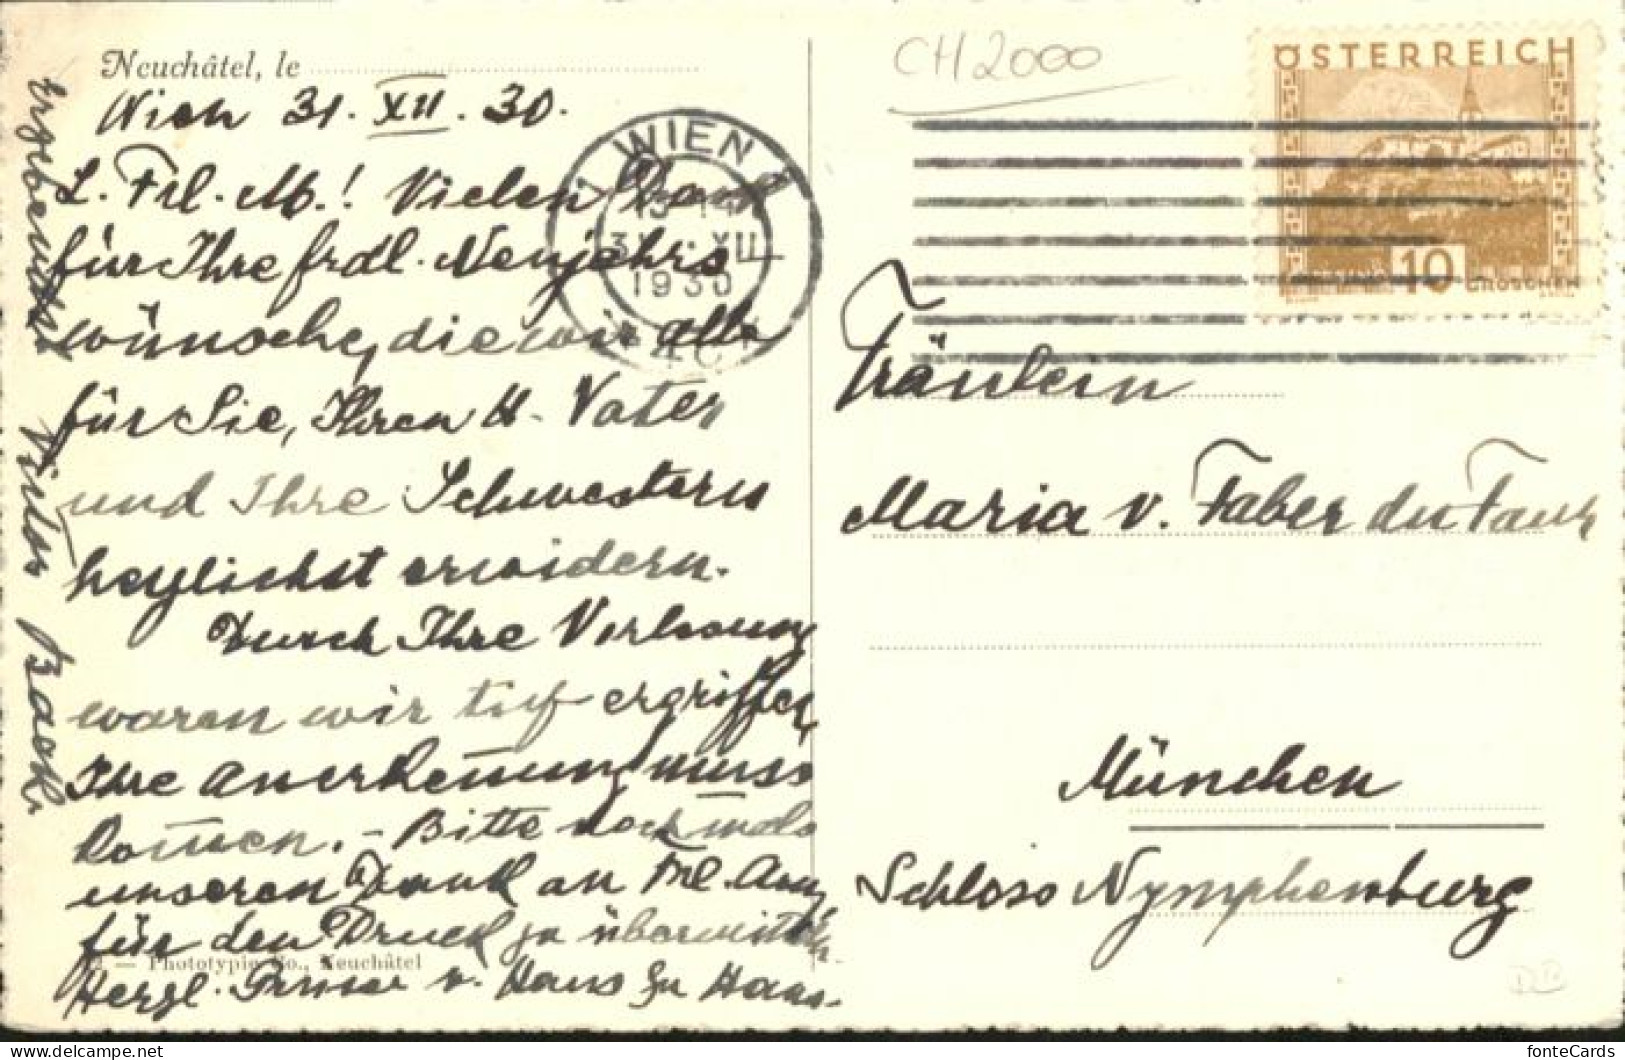 Neuchâtel, le
Wien 31. XII. 30.
L. Frl. M.! Vielen Dank
für Ihre frdl. Neujahrs
wünsche, die wir alle
für Sie, Ihren H. Vater
und Ihre Schwestern
herzlichst erwidern.
Durch Ihre Verlosung
waren wir tief ergriffen,
Ihre Anerkeñung muss
kom̄en. - Bitte nochmals
unseren Dank an Frl. Amy
für den Druck zu übermitteln.
Herzl. Grüsse v. Haus zu Haus.
ergebenst Viktor Back
Phototypie Co., Neuchâtel
CH2000
1 WIEN 1
31. XII
1930
ÖSTERREICH
10
GROSCHEN
Fräulein
Maria v. Faber du Faur
München
Schloss Nymphenburg
DB
fonteCards